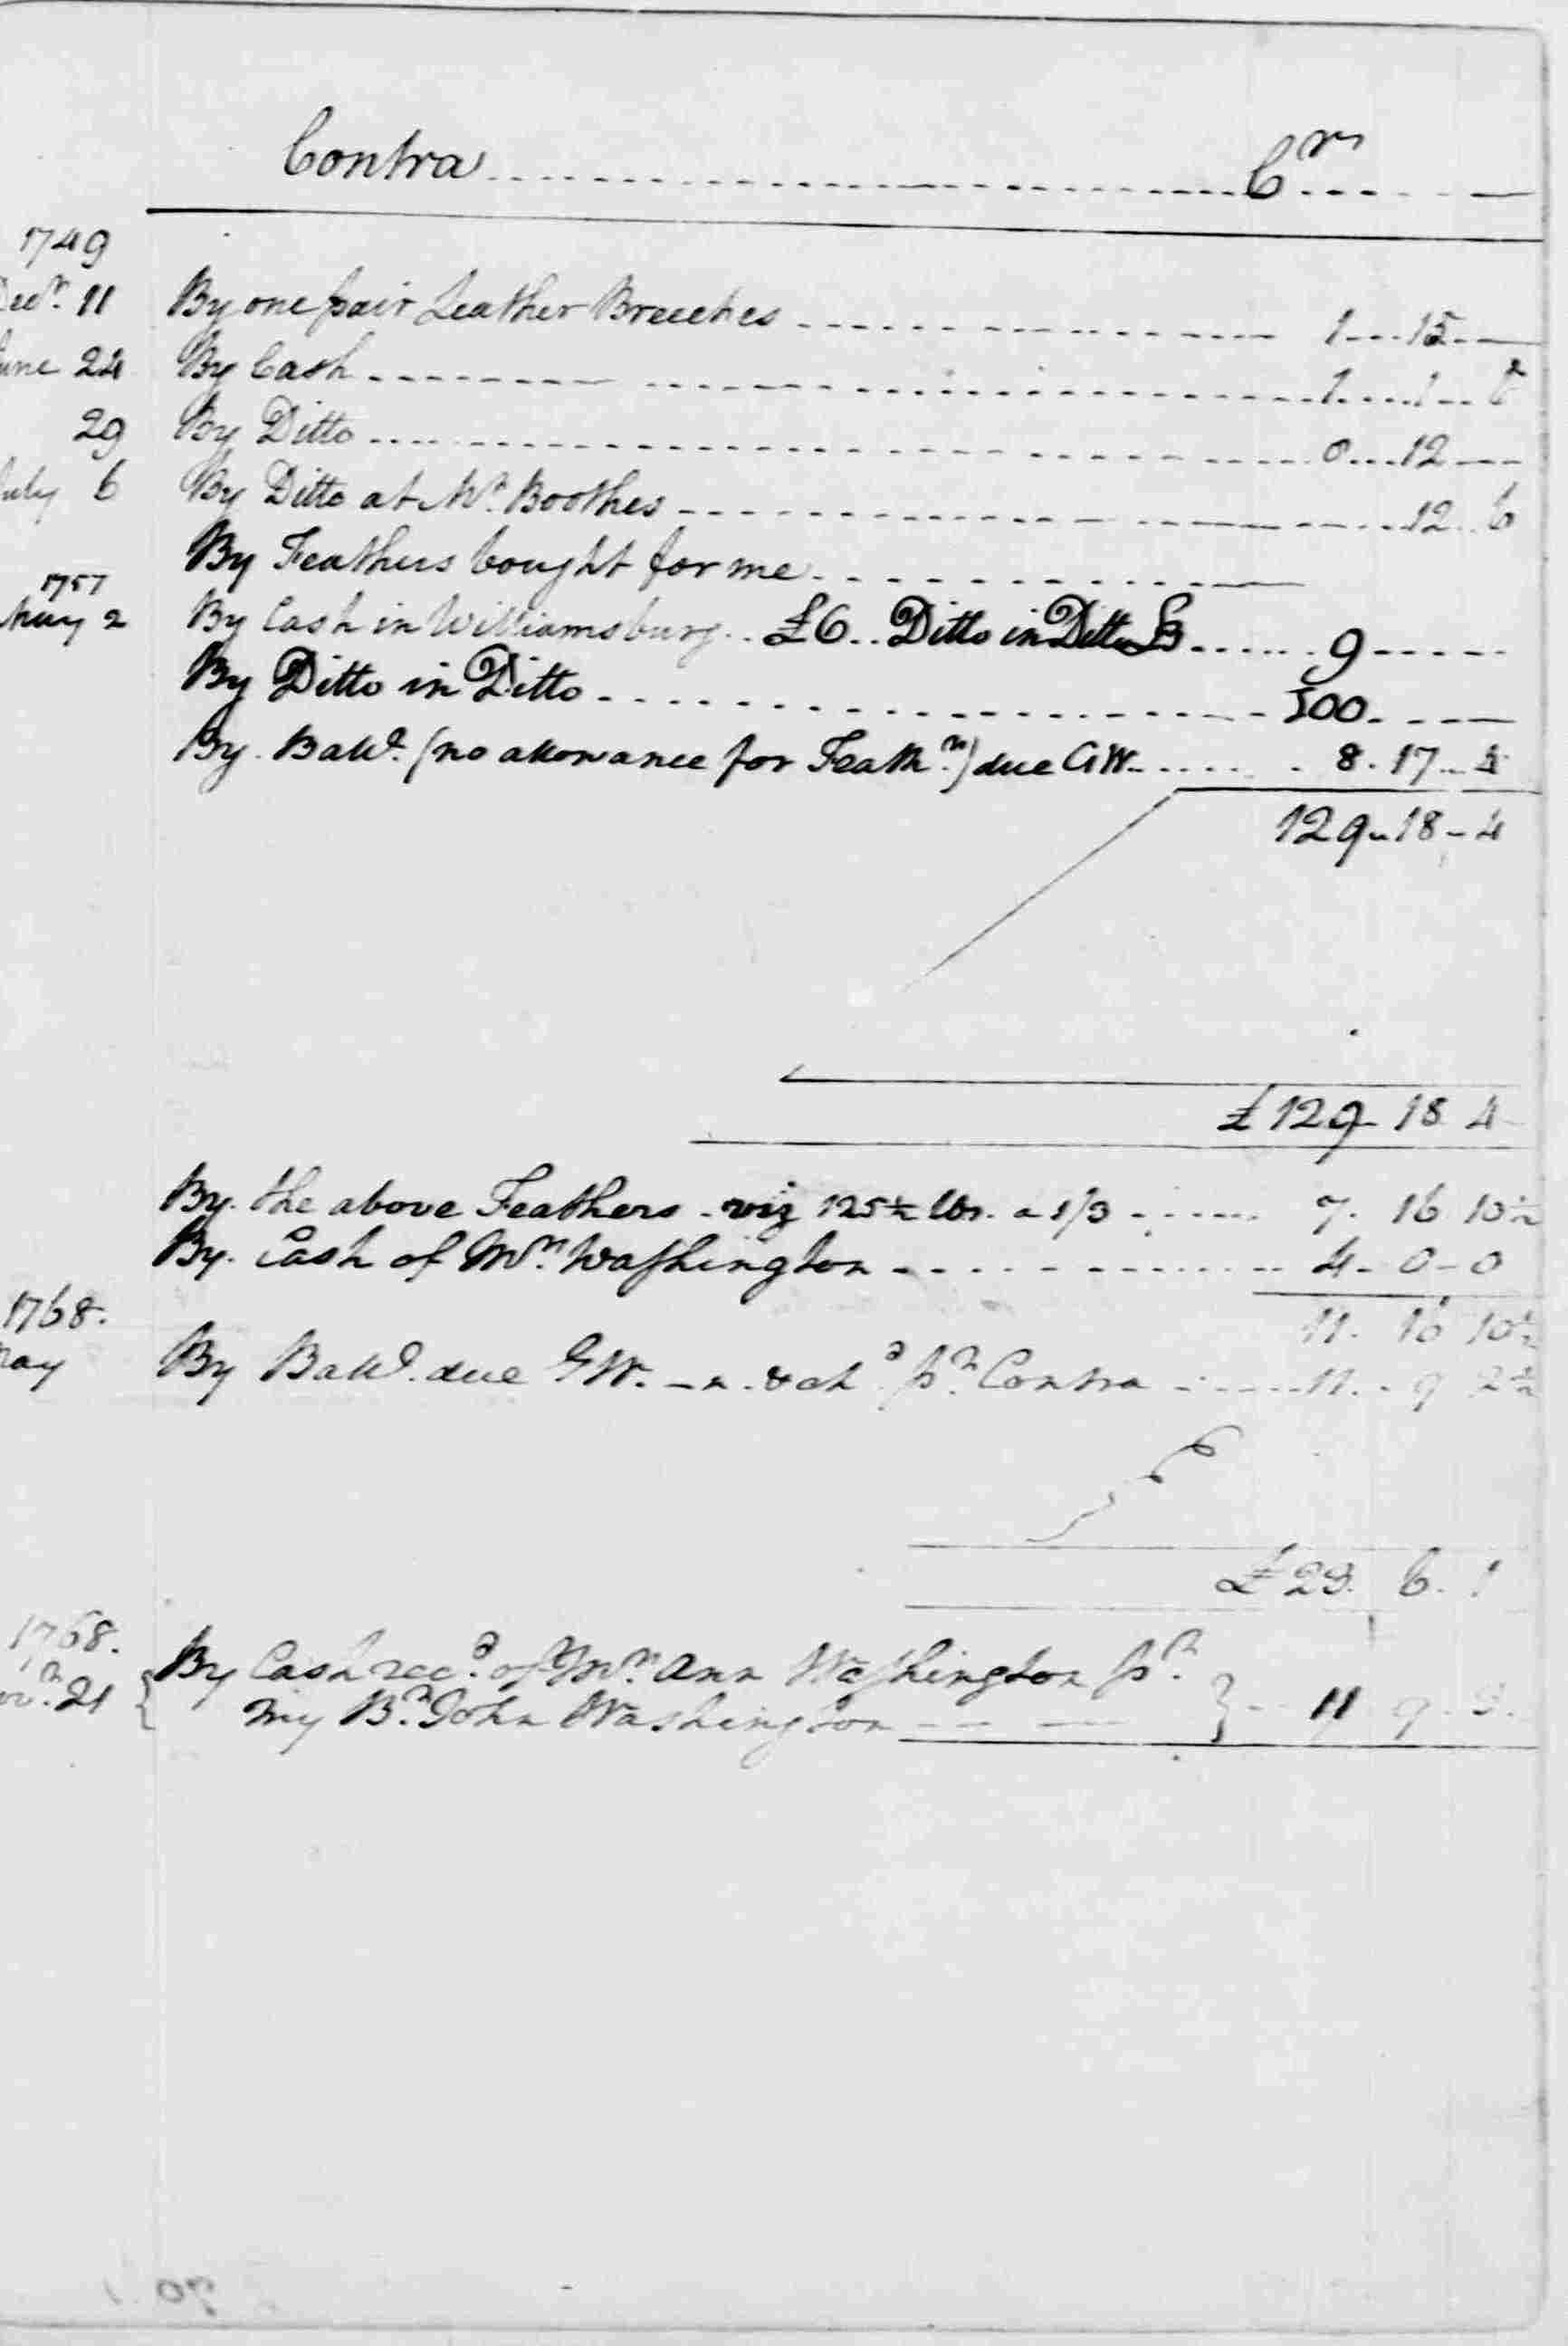 Contra Cr
1749
Decr. 11 By one pair Leather Breeches 1 15
June 24 By Cash 1 1 6
29 By Ditto 0 12
July 6 By Ditto at Mr. Boothes 12 6
By Feathers bought for me
1757
May 2 By Cash in Williamsburg £6 Ditto in Ditto £3 9
By Ditto in Ditto 100
By Balle. (no allowance for Feathrs.) due GW 8. 17 4
129 18 4
£129 18 4
By the above Feathers viz 125½ lbs. a 1/3 7. 16 10½
By Cash of Mrs. Washington 4 0 0
11. 16 10½
1768.
May By Balle. due GW. chd. pr. Contra 11. 9 2½
£23. 6. 1
1768.
21 By Cash recd. of Mrs. Ann Washington pr.
my Br. John Washington 11 9 3.